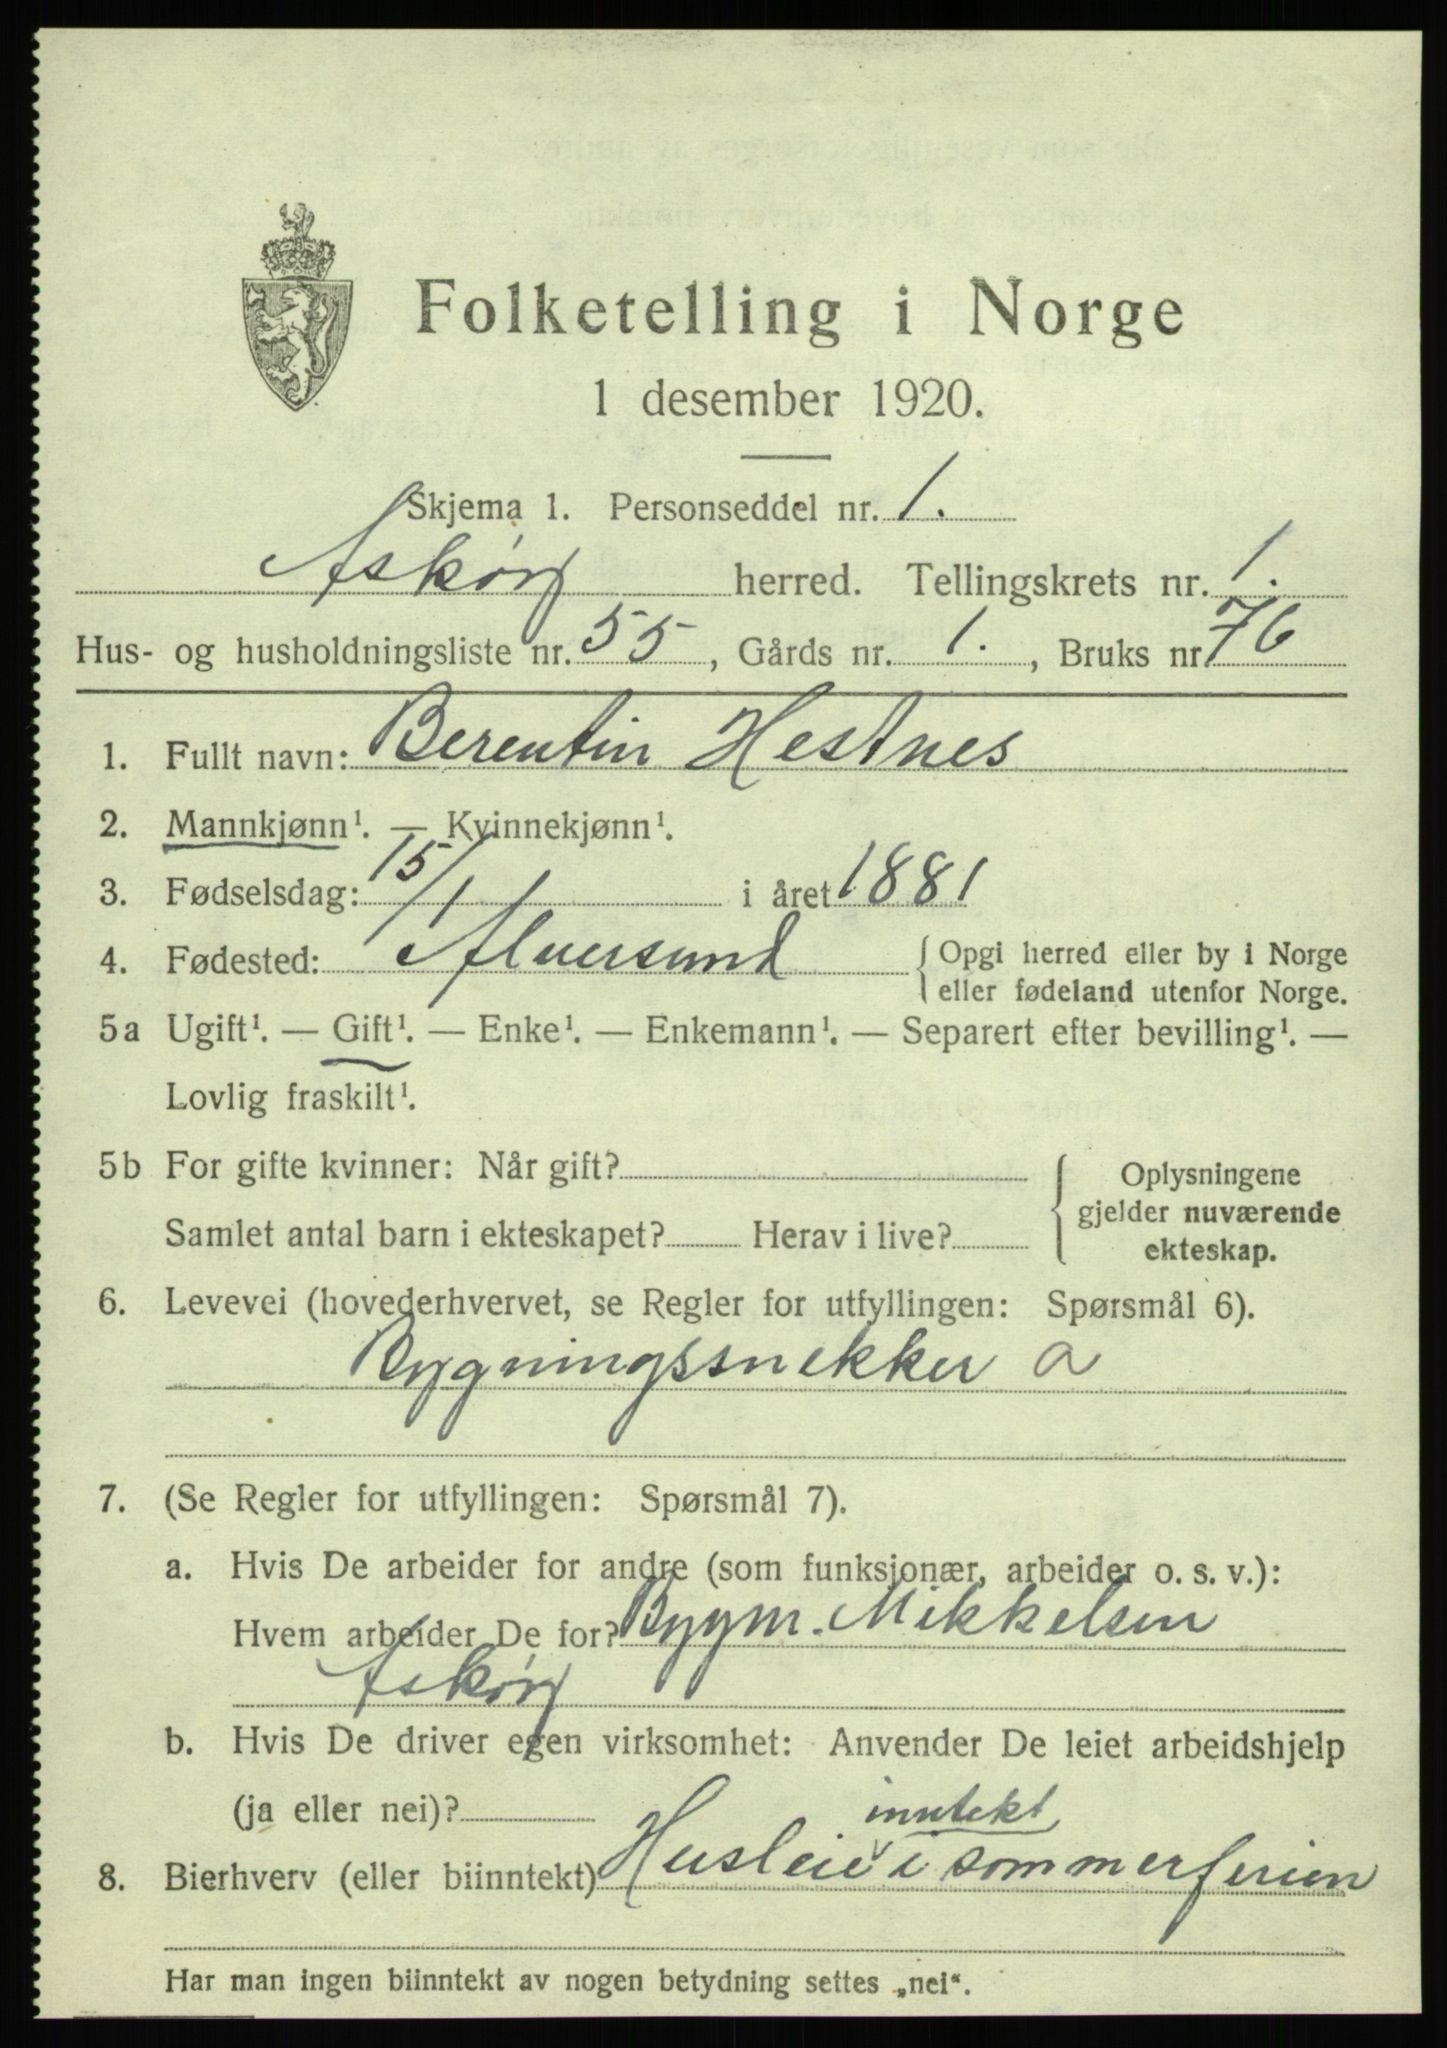 Folketelling i Norge
1 desember 1920.
Skjema 1. Personseddel nr. 1.
Askøy herred. Tellingskrets nr. 1.
Hus- og husholdningsliste nr. 55, Gårds nr. 1., Bruks nr 76
1. Fullt navn: Berentin Hestnes
2. Mannkjønn¹. — Kvinnekjønn¹.
3. Fødselsdag: 15/1 i året 1881
4. Fødested: Alversund { Opgi herred eller by i Norge
eller fødeland utenfor Norge.
5a Ugift¹. — Gift¹. — Enke¹. — Enkemann¹. — Separert efter bevilling¹. —
Lovlig fraskilt¹.
5b For gifte kvinner: Når gift?
Samlet antal barn i ekteskapet? Herav i live?
{ Oplysningene
gjelder nuværende
ekteskap.
6. Levevei (hovederhvervet, se Regler for utfyllingen: Spørsmål 6).
Bygningssnekker a
7. (Se Regler for utfyllingen: Spørsmål 7).
a. Hvis De arbeider for andre (som funksjonær, arbeider o. s. v.):
Hvem arbeider De for? Byggm. Mikkelsen
Askøy
b. Hvis De driver egen virksomhet: Anvender De leiet arbeidshjelp
(ja eller nei)?
inntekt
8. Bierhverv (eller biinntekt) Husleie i sommerferien
Har man ingen biinntekt av nogen betydning settes „nei“.